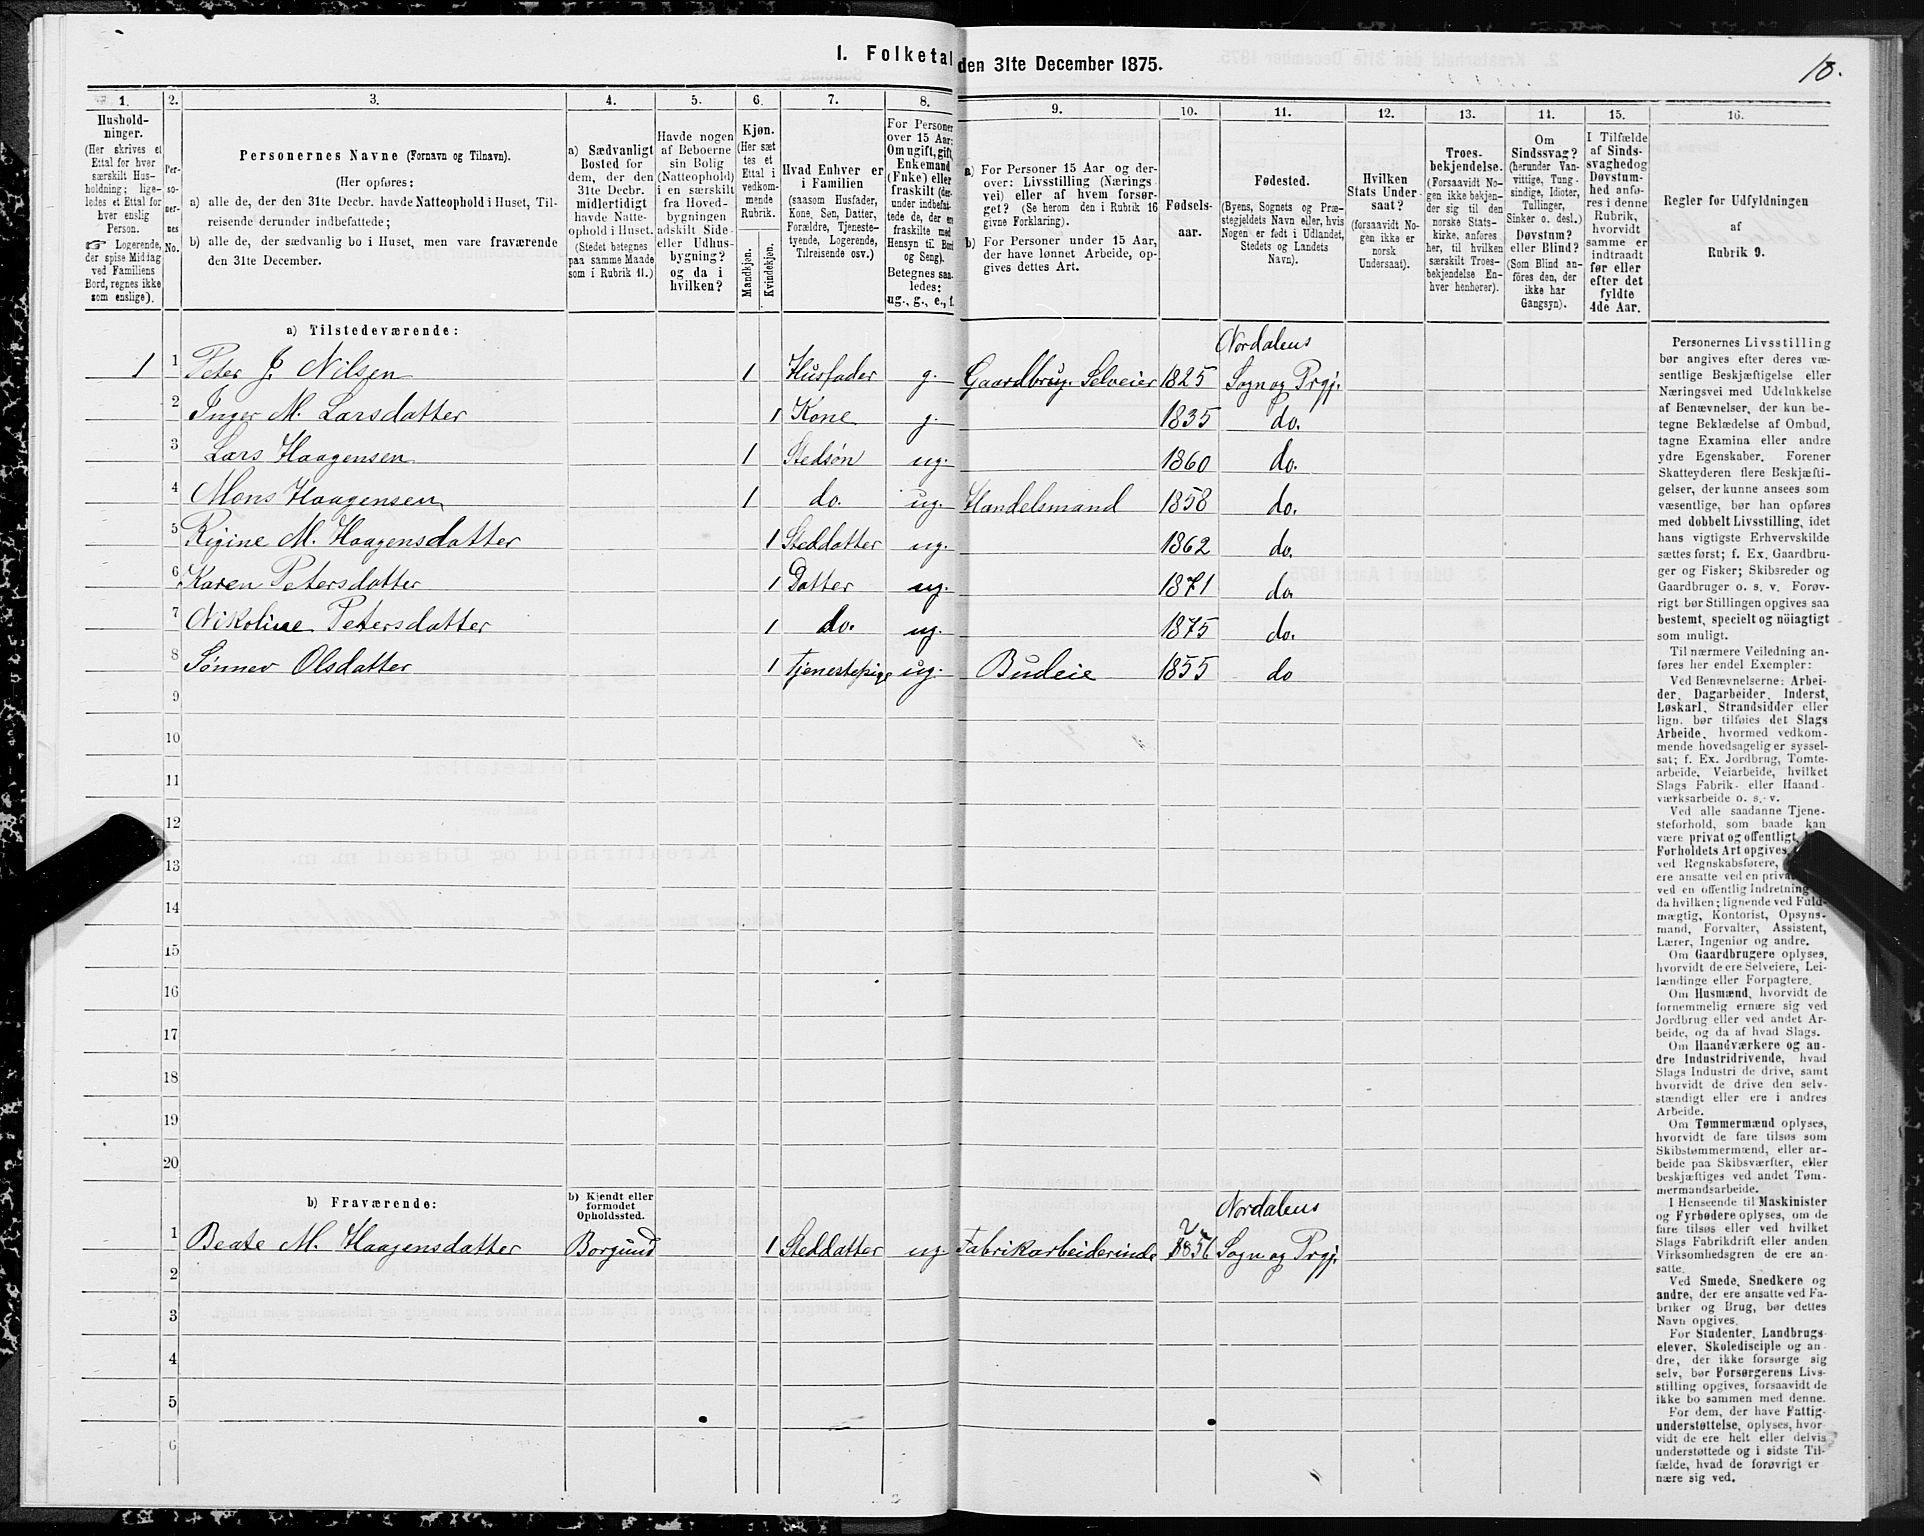 1. Folketal den 31te December 1875.
10.
1.
2.
3.
4.
5.
6.
7.
8.
9.
10.
11.
12.
13.
14.
15.
16.
Hushold-
ninger.
(Her skrives et
Ettal for hver
særskilt Hus-
holdning; lige-
ledes et Ettal for
hver enslig
Person.
☞ Logerende,
der spise Middag
ved Familiens
Bord, regnes ikke
som enslige).
Per-
so-
ner-
nes
No.
Personernes Navne (Fornavn og Tilnavn).
(Her opføres:
a) alle de, der den 31te Decbr. havde Natteophold i Huset, Til-
reisende derunder indbefattede;
b) alle de, der sædvanlig bo i Huset, men vare fraværende
den 31te December.
a) Sædvanligt
Bosted for
dem, der den
31te Decbr.
midlertidigt
havde Natte-
ophold i Huset.
(Stedet betegnes
paa samme Maade
som i Rubrik 11.)
Havde nogen
af Beboerne
sin Bolig
(Natteophold)
i en særskilt
fra Hoved-
bygningen
adskilt Side-
eller Udhus-
bygning?
og da i
hvilken?
Kjøn.
(Her sæt
tes et
Ettal i
vedkom-
mende
Rubrik.
Mandkjøn.
Kvindekjøn.
Hvad Enhver er
i Familien
(saasom Husfader,
Kone, Søn, Datter,
Forældre, Tjeneste-
tyende, Logerende,
Tilreisende osv.)
For Personer
over 15 Aar:
Om ugift, gift,
Enkemand
(Enke) eller
fraskilt (der-
under indbefat-
tede de, der ere
fraskilte med
Hensyn til Bord
og Seng).
Betegnes saa-
ledes:
ug., g., e., f.
a) For Personer 15 Aar og der-
over: Livsstilling (Nærings-
vei) eller af hvem forsør-
get? (Se herom den i Rubrik 16
givne Forklaring).
b) For Personer under 15 Aar,
der have lønnet Arbeide, op-
gives dettes Art.
Fødsels-
aar.
Fødested.
(Byens, Sognets og Præ-
stegjeldets Navn eller, hvis
Nogen er født i Udlandet,
Stedets og Landets
Navn).
Hvilken
Stats Under-
saat?
(forsaavidt No-
gen ikke er
norsk
Undersaat).
Troes-
bekjendelse.
(Forsaavidt No-
gen ikke bekjen-
der sig til den
norske Stats-
kirke, anføres
her, til hvilken
særskilt Troes-
bekjendelse En-
hver henhører).
Om
Sindssvag?
(herunder Van-
vittige, Tung-
sindige, Idioter,
Tullinger,
Sinker o. desl.)
Døvstum?
eller Blind?
(Som Blind an-
føres den, der
ikke har
Gangsyn).
I Tilfælde
af Sinds-
svaghed og
Døvstum-
hed anfø-
res i denne
Rubrik,
hvorvidt
samme er
indtraadt
før eller
efter det
fyldte
4de Aar.
Regler for Udfyldningen
af
Rubrik 9.
a) Tilstedeværende:
Nordalens
1 1 Peter J. Nilsen 1 Husfader g. Gaardbrug. Selveier 1825 Sogn og Prgj.
2 Inger M. Larsdatter 1 Kone g. 1835 do.
3 Lars Haagensen 1 Stedsøn ug. 1860 do.
4 Mons Haagensen 1 do. ug. Handelsmand 1858 do.
5 Rigine M. Haagensdatter 1 Steddatter ug. 1862 do.
6 Karen Petersdatter 1 Datter ug. 1871 do.
7 Nikoline Petersdatter 1 do. ug. 1875 do.
8 Sønnev Olsdatter 1 Tjenestepige ug. Budeie 1855 do
9
10
11
12
13
14
15
16
17
18
19
20
b) Fraværende:
b) Kjendt eller
formodet
Opholdssted.
Nordalens
1 Beate M. Haagensdatter Borgund 1 Steddatter ug. Fabrikarbeiderinde 1856 Sogn og Prgj.
2
3
4
5
6
Personernes Livsstilling
bør angives efter deres væ-
sentlige Beskjæftigelse eller
Næringsvei med Udelukkelse
af Benævnelser, der kun be-
tegne Beklædelse af Ombud,
tagne Examina eller andre
ydre Egenskaber. Forener
Skatteyderen flere Beskjæfti-
gelser, der kunne ansees som
væsentlige, bør han opføres
med dobbelt Livsstilling, idet
hans vigtigste Erhvervskilde
sættes først; f. Ex. Gaardbru-
ger og Fisker; Skibsreder og
Gaardbruger o. s. v. Forøv-
rigt bør Stillingen opgives saa
bestemt, specielt og nöiagtigt
som muligt.
Til nærmere Veiledning an-
føres her endel Exempler:
Ved Benævnelserne: Arbei-
der, Dagarbeider, Inderst,
Løskarl, Strandsidder eller
lign. bør tilføies det Slags
Arbeide, hvormed vedkom-
mende hovedsagelig er syssel-
sat; f. Ex. Jordbrug, Tomte-
arbeide, Veiarbeide, hvilket
Slags Fabrik- eller Haand-
værksarbeide o. s. v.
Ved alle saadanne Tjene-
steforhold, som baade kan
være privat og offentligt,
Forholdets Art opgives,
ved Regnskabsførere,
ere ansatte ved en privat
ved en offentlig Indretning
da hvilken; lignende ved Fuld-
mægtig, Kontorist, Opsyns-
mand, Forvalter, Assistent,
Lærer, Ingeniør og andre.
Om Gaardbrugere oplyses,
hvorvidt de ere Selveiere, Lei-
lændinge eller Forpagtere.
Om Husmænd, hvorvidt de
fornemmelig ernære sig ved
Jordbrug eller ved andet Ar-
beide, og da af hvad Slags.
Om Haandværkere og an-
dre Industridrivende, hvad
Slags Industri de drive, samt
hvorvidt de drive den selv-
stændigt eller ere i andres
Arbeide.
Om Tømmermænd oplyses,
hvorvidt de fare tilsøs som
Skibstømmermænd, eller ar-
beide paa Skibsværfter, eller
beskjæftiges ved andet Tøm-
mermandsarbeide.
I Henseende til Maskinister
og Fyrbødere oplyses, om de
fare tilsøs eller ved hvilket
Slags Fabrikdrift eller anden
Virksomhedsgren de ere an-
satte.
Ved Smede, Snedkere og
andre, der ere ansatte ved Fa-
briker og Brug, bør dettes
Navn opgives.
For Studenter, Landbrugs-
elever, Skoledisciple og an-
dre, der ikke forsørge sig
selv, bør Forsørgerens Livs-
stilling opgives, forsaavidt de
ikke bo sammen med denne.
For dem, der have Fattig-
understøttelse, oplyses, hvor-
vidt de ere helt eller delvis
understøttede og i sidste Til-
fælde, hvad de forøvrigt er-
nære sig ved.